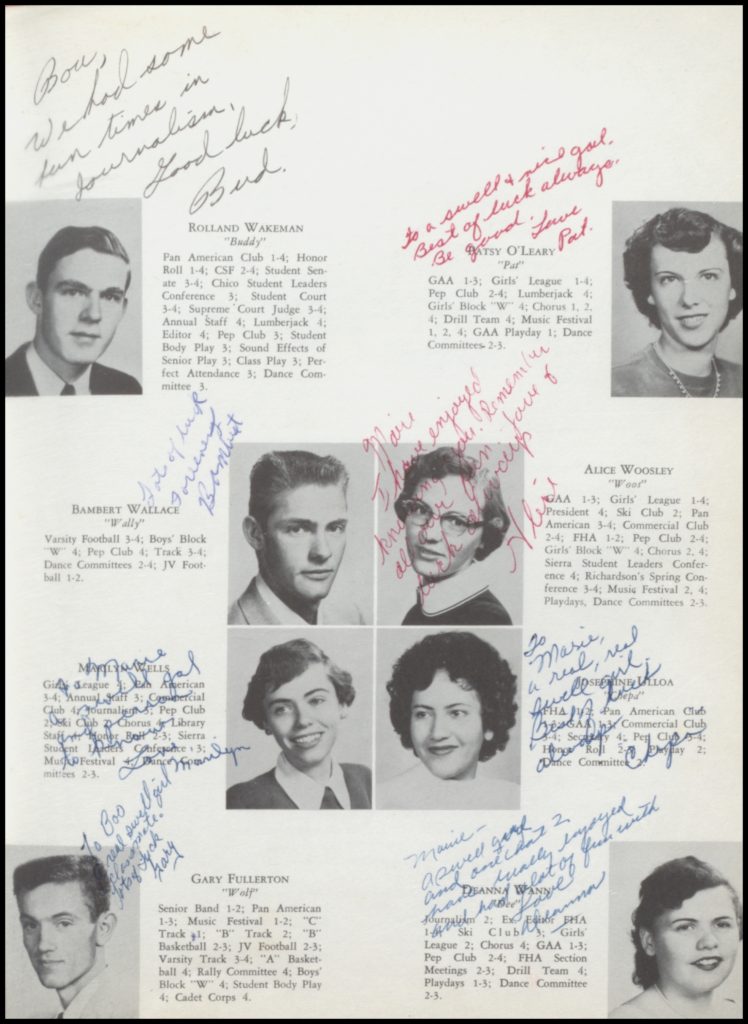 Bou,
We had some
fun times in
Journalism,
Good luck,
Bud.
to a swell & nice gal.
Best of luck always.
Be good. Love
Pat.
ROLLAND WAKEMAN
"Buddy"
Pan American Club 1-4; Honor
Roll 1-4; CSF 2-4; Student Sen-
ate 3-4; Chico Student Leaders
Conference 3; Student Court
3-4; Supreme Court Judge 3-4;
Annual Staff 4; Lumberjack 4;
Editor 4; Pep Club 3; Student
Body Play 3; Sound Effects of
Senior Play 3; Class Play 3; Per-
fect Attendance 3; Dance Com-
mittee 3.
PATSY O'LEARY
"Pat"
GAA 1-3; Girls' League 1-4;
Pep Club 2-4; Lumberjack 4;
Girls' Block "W" 4; Chorus 1, 2,
4; Drill Team 4; Music Festival
1, 2, 4; GAA Playday 1; Dance
Committees 2-3.
Lots of luck
Forever
Bambert
BAMBERT WALLACE
"Wally"
Varsity Football 3-4; Boys' Block
"W" 4; Pep Club 4; Track 3-4;
Dance Committees 2-4; JV Foot-
ball 1-2.
Marie
I have enjoyed
knowing you. Remember
all our fun
luck always
Love &
Alice
ALICE WOOSLEY
"Woos"
GAA 1-3; Girls' League 1-4;
President 4; Ski Club 2; Pan
American 3-4; Commercial Club
2-4; FHA 1-2; Pep Club 2-4;
Girls' Block "W" 4; Chorus 2, 4;
Sierra Student Leaders Confer-
ence 4; Richardson's Spring Con-
ference 3-4; Music Festival 2, 4;
Playdays, Dance Committees 2-3.
MARILYN WELLS
Girls' League 4; Pan American
3-4; Annual Staff 3; Commercial
Club 4; Journalism 3; Pep Club
2; Ski Club 2; Chorus 4; Library
Staff 4; Honor Roll 2-3; Sierra
Student Leaders Conference 3;
Music Festival 4; Dance Com-
mittees 2-3.
To Marie
a swell gal
Love
Marilyn
To
Marie,
a real, real
swell girl.
Best of luck
always
Chepa
JOSEPHINE ULLOA
"Chepa"
FHA 1-2; Pan American Club
GAA Commercial Club
3-4; Secretary 4; Pep Club 3-4;
Honor Roll 2-3; Playday 2;
Dance Committee 2.
To Boo
a real swell girl
& classmate.
lots of luck
Gary
GARY FULLERTON
"Wolf"
Senior Band 1-2; Pan American
1-3; Music Festival 1-2; "C"
Track 1; "B" Track 2; "B"
Basketball 2-3; JV Football 2-3;
Varsity Track 3-4; "A" Basket-
ball 4; Rally Committee 4; Boys'
Block "W" 4; Student Body Play
4; Cadet Corps 4.
Marie –
A swell gal
and one that I
have really enjoyed
and had a lot of fun with
Love
Deanna
DEANNA WANN
"Dee"
Journalism 2; Ex. Editor FHA
1-3; Ski Club 3; Girls'
League 2; Chorus 4; GAA 1-3;
Pep Club 2-4; FHA Section
Meetings 2-3; Drill Team 4;
Playdays 1-3; Dance Committee
2-3.